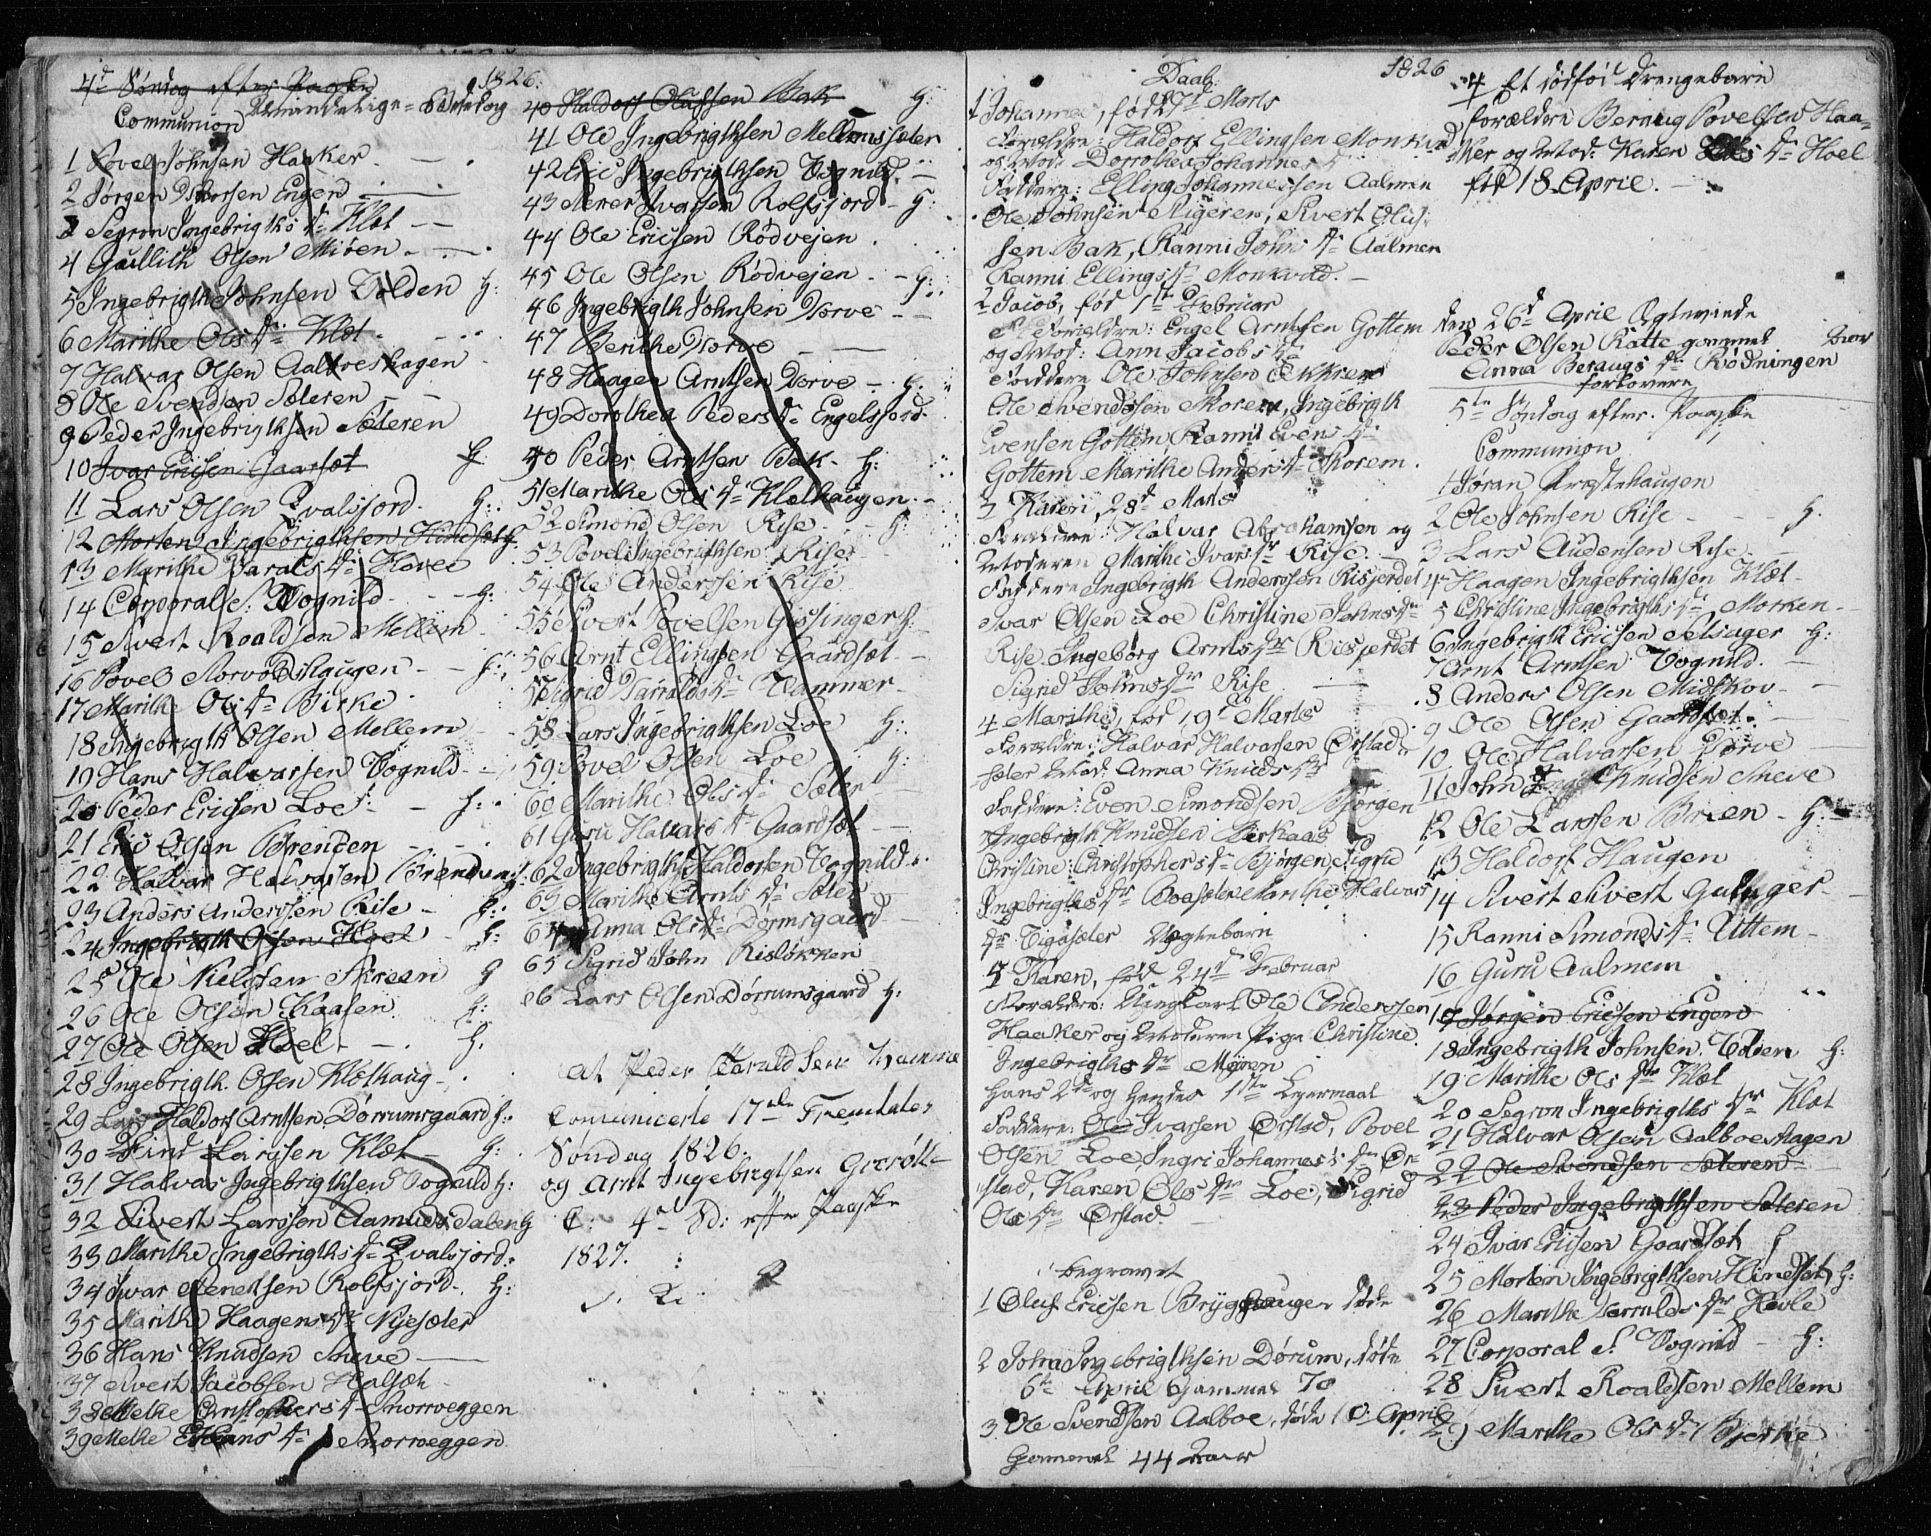 1826.
4de Søndag efter Paaske
Almindelige Bededag
Communion
1 Povel Johnsen Haaker
2 Jørgen Engen
3 Segron Ingebrigths Dr Klæt
4 Gullith Olsen Miøen
5 Ingebrigth Johnsen Volden H:
6 Marithe Ols Dr Klæt
7 Halvar Olsen Aalboeshagen
8 Ole Svendsen Sæteren
9 Peder Ingebrigthsen Sæteren
10 Ivar Ericsen Gaarsæt H:
11 Lars Olsen Qvalsjord H:
12 Morten Ingebrigthsen Hindset H:
13 Marithe Harals Dr Hevle
14 Corporal S: Vognild H:
15 Sivert Roaldsen Mellem
16 Povel Haugen H:
17 Marithe Ols Dr Birke
18 Ingebrigth Olsen Mellem
19 Hans Halvarsen Vognild
20 Peder Ericsen Loe H:
21 Eric Olsen Brenden
22 Halvar Halvarsen Brenden H:
23 Anders Anderssen Rise H:
24 Ingebrigth Olsen Hoel H:
25 Ole Nielssen H
26 Ole Olsen Kaasen H:
27 Ole Olsen Hoel H.
28 Ingebrigth Olsen Klæthaug
29 Haldorf Arntsen Dørrumsgaard H:
30 Larssen Klæt H:
31 Halvar Ingebrigthsen Vognild H:
32 Sivert Larssen Aamundsdalen H
33 Marithe Ingebrigths Dr Qvalsjord
34 Ivar Rolfsjord H:
35 Marithe Haagens Dr Nyesæter
36 Hans Knudsen Sneve
37 Sivert Jacobsen Halsæt
38 Melke Christophers Dr Snorroeggen
39 Melke Dr Snorroeggen
40 Haldorf Olufsen Bak H:
41 Ole Ingebrigthsen Mellemsæter
42 Eric Ingebrigthsen Vognild
43 Ivarsen Rolfsjord H:
44 Ole Ericsen Rødvejen
45 Ole Olsen Rødvejen H:
46 Ingebrigth Johnsen Dorve
47 Berithe Dorve
48 Haagen Arntsen Dorve H:
49 Dorothea Peders Dr Engelsjord
50 Peder Arntsen Bak H:
51 Marithe Ols Dr Klæthaugen
52 Simond Olsen Rise H:
53 Povel Ingebrigthsen Rise
54 Ole Anderssen Rise
55 Sivert Povelsen Gisinger H:
56 Arnt Ellingsen Gaardsæt
57 Sigrid Haralds Dr Hammer
58 Lars Ingebrigthsen Loe H:
59 Povel Olsen Loe H:
60 Marithe Ols Dr Sæter
61 Guru Halvars Dr Gaardsæt
62 Ingebrigth Haldorsen Vognild
63 Marithe Arnts Dr Sæter
64 Anna Ols Dr Dørmsgaard
65 Sigrid John Risløkken
66 Lars Olsen Dørrumsgaard H:
at Peder Haraldsen Hamme
Comunicerte 17de
Søndag 1826.
og Arnt Ingebrigtsen
4de Sd: efter Paaske
1827.
Daab. 1826
1 Johannes, fød 7d Marts
Forældre: Haldorf Ellingsen Monkvad
og Mod: Dorothea Johannes Dr
Faddere: Elling Johannessen Aalmen
Ole Johnsen Aigeren, Sivert Oluf-
sen Bak, Ranni Johns Dr Aalmen
Ranni Ellings Dr Monkvad.
2 Jacob, fød 1ste Februar
Forældre: Engel Arntsen Gottem
og Mod: Ann Jacobs Dr
Faddere Ole Johnsen Ekkren
Ole Svendssen Skorem, Ingebrigth
Evensen Gottem, Ranni Evens Dr
Gottem Marithe Anders Dr Skorem.
3 Karen, 28d Marts
Forældre: Halvar Abrahamsen og
Moderen Marithe Ivars Dr Rise.
Faddere Ingebrigth Anderssen Risjerdet
Ivar Olsen Loe Christine Johns Dr
Rise, Ingeborg Arnts Dr Risjerdet
Sigrid Johns Dr Rise
4 Marithe, fød 19d Marts
Forældre: Halvar Halvarsen Ørstad-
sæter Mod: Anna Knuds Dr
Faddere: Even Simondsen Bjørgen
Ingebrigth Knudsen Birkaas
Christine: Christophers Dr Bjørgen, Sigrid
Ingebrigths Dr Marithe Halvars
Dr Tigasæter Uægtebarn
5 Karen, fød 24d Februar
Forældre: Ungkarl Ole Anderssen
Haaker og Moderen Pige Christine
Ingebrigths Dr Myren
hans 2d og hendes 1ste Lejermaal
Faddere: Ole Ivarsen Ørstad, Povel
Olsen Loe, Ingri Johannes's Dr Ør-
stad, Karen Ols Dr Loe, Sigrid
Ols Dr Ørstad.
begravet
1 Oluf Ericsen Bryghaugen døde
2 John Ingebrigthsen Dørum, døde
6te April Gammel 70
3 Ole Svendsen Aalboe, døde 10 April
Gammel 44 Aar
4 Et dødfød Drengebarn
Forældre Beraug Povelsen Haa-
ker og Mod: Karen Dr Hoel
fød 18 April.
den 26d April Ægteviede
Peder Olsen Ratte gammel
Anna Beraugs Dr Rødningen
forlovere
5te Søndag efter Paaske
Communion
1 Jøran Præsthaugen
2 Ole Johnsen Rise H.
3 Lars Audensen Rise
4 Haagen Ingebrigthsen Klæt
5 Christine Ingebrigths Dr Morken
6 Ingebrigth Ericsen Selsager H:
7 Arnt Arntsen Vognild
8 Anders Olsen Midskov
9 Ole Olsen Gaardsæt
10 Ole Halvarsen Dorve
11 John Knudsen Sneve
12 Ole Larssen Brien H:
13 Haldorf Haugen
14 Sivert Sivert
15 Ranni Simonds Dr Uttem
16 Guru Aalmem
17 Jørgen Ericsen Engen
18 Ingebrigth Johnsen Volden H:
19 Marithe Ols Dr Klæt
20 Segron Ingebrigths Dr Klæt
21 Halvar Olsen Aalboeshagen
22 Ole Svendsen Sæteren
23 Peder Ingebrigthsen Sæteren
24 Ivar Ericsen Gaardsæt H
25 Morten Ingebrigthsen Hindset H:
26 Marithe Haralds Dr Hevle
27 Corporal S. Vognild H:
28 Sivert Roaldsen Mellem
29 Marithe Ols Dr Bjerke